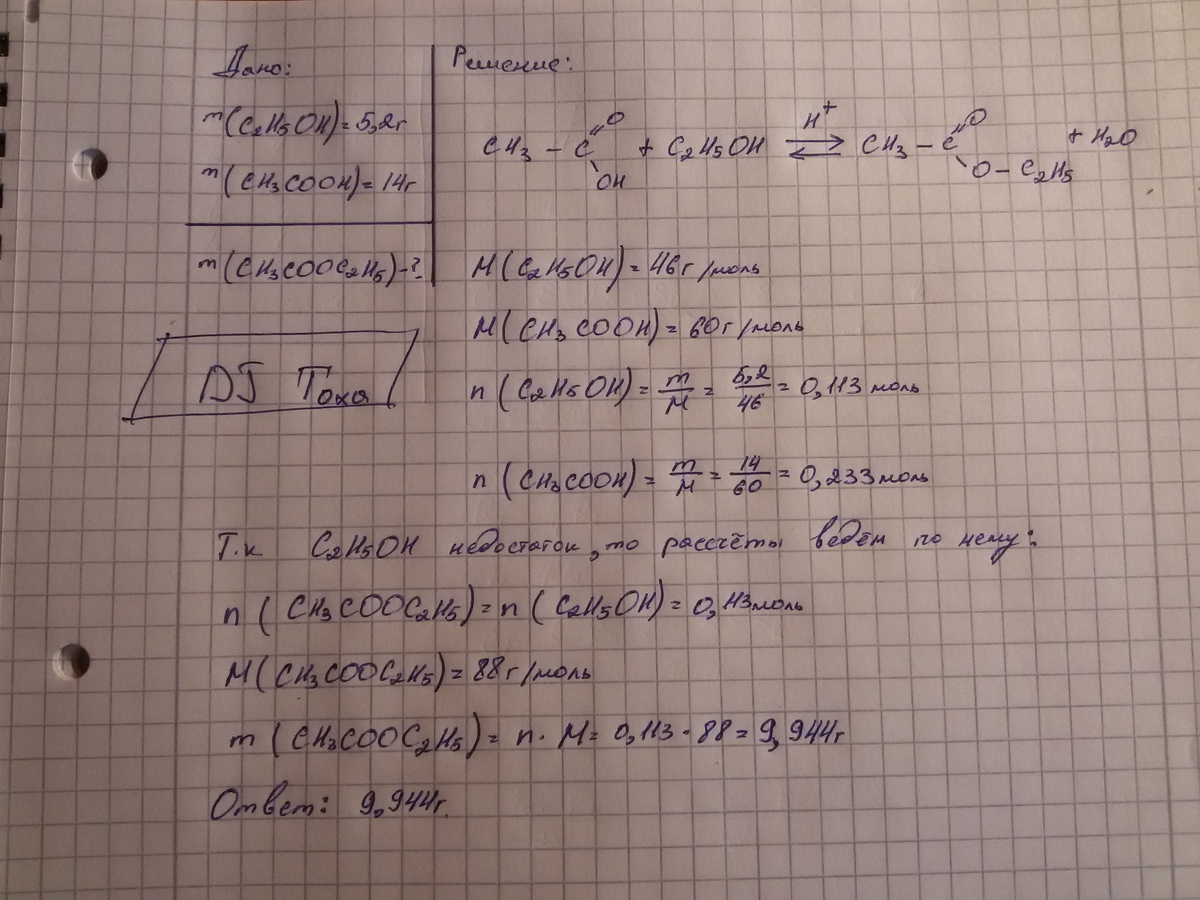 Дано:
m(C2H5OH)=5,2г
m(CH3COOH)=14г
m(CH3COOC2H5)-?
DJ Тоха
Решение:
CH3 – C =O OH + C2H5OH ⇌ H+ CH3 – C =O O – C2H5 + H2O
M(C2H5OH)=46г/моль
M(CH3COOH)=60г/моль
n(C2H5OH)= m/M = 5,2/46 = 0,113моль
n(CH3COOH)= m/M = 14/60 = 0,233моль
Т.к C2H5OH недостаток, то рассчёты ведём по нему:
n(CH3COOC2H5)=n(C2H5OH)=0,113моль
M(CH3COOC2H5)=88г/моль
m(CH3COOC2H5)= n·M= 0,113·88=9,944г
Ответ: 9,944г.